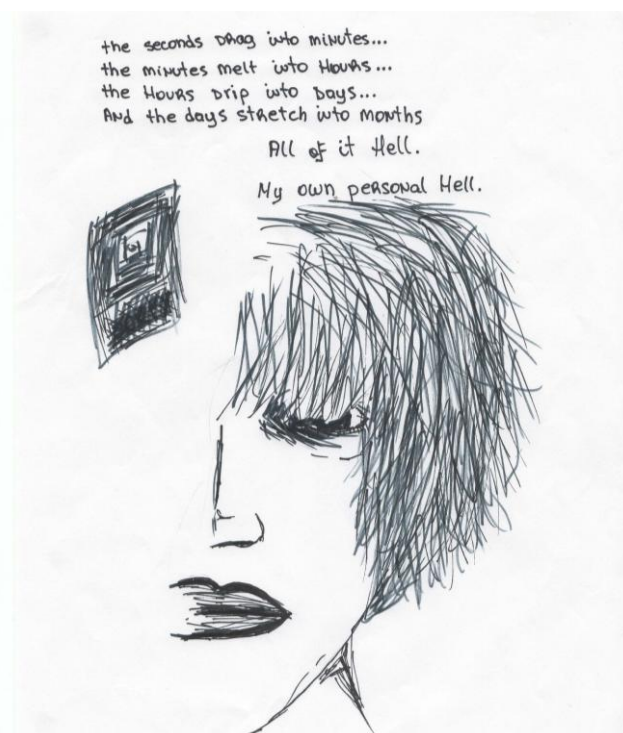 the seconds DRag into minutes...
the minutes melt into HouRs...
the HouRs DRip into Days...
AnD the days stRetch into months
All of it Hell.
My own peRsonal Hell.